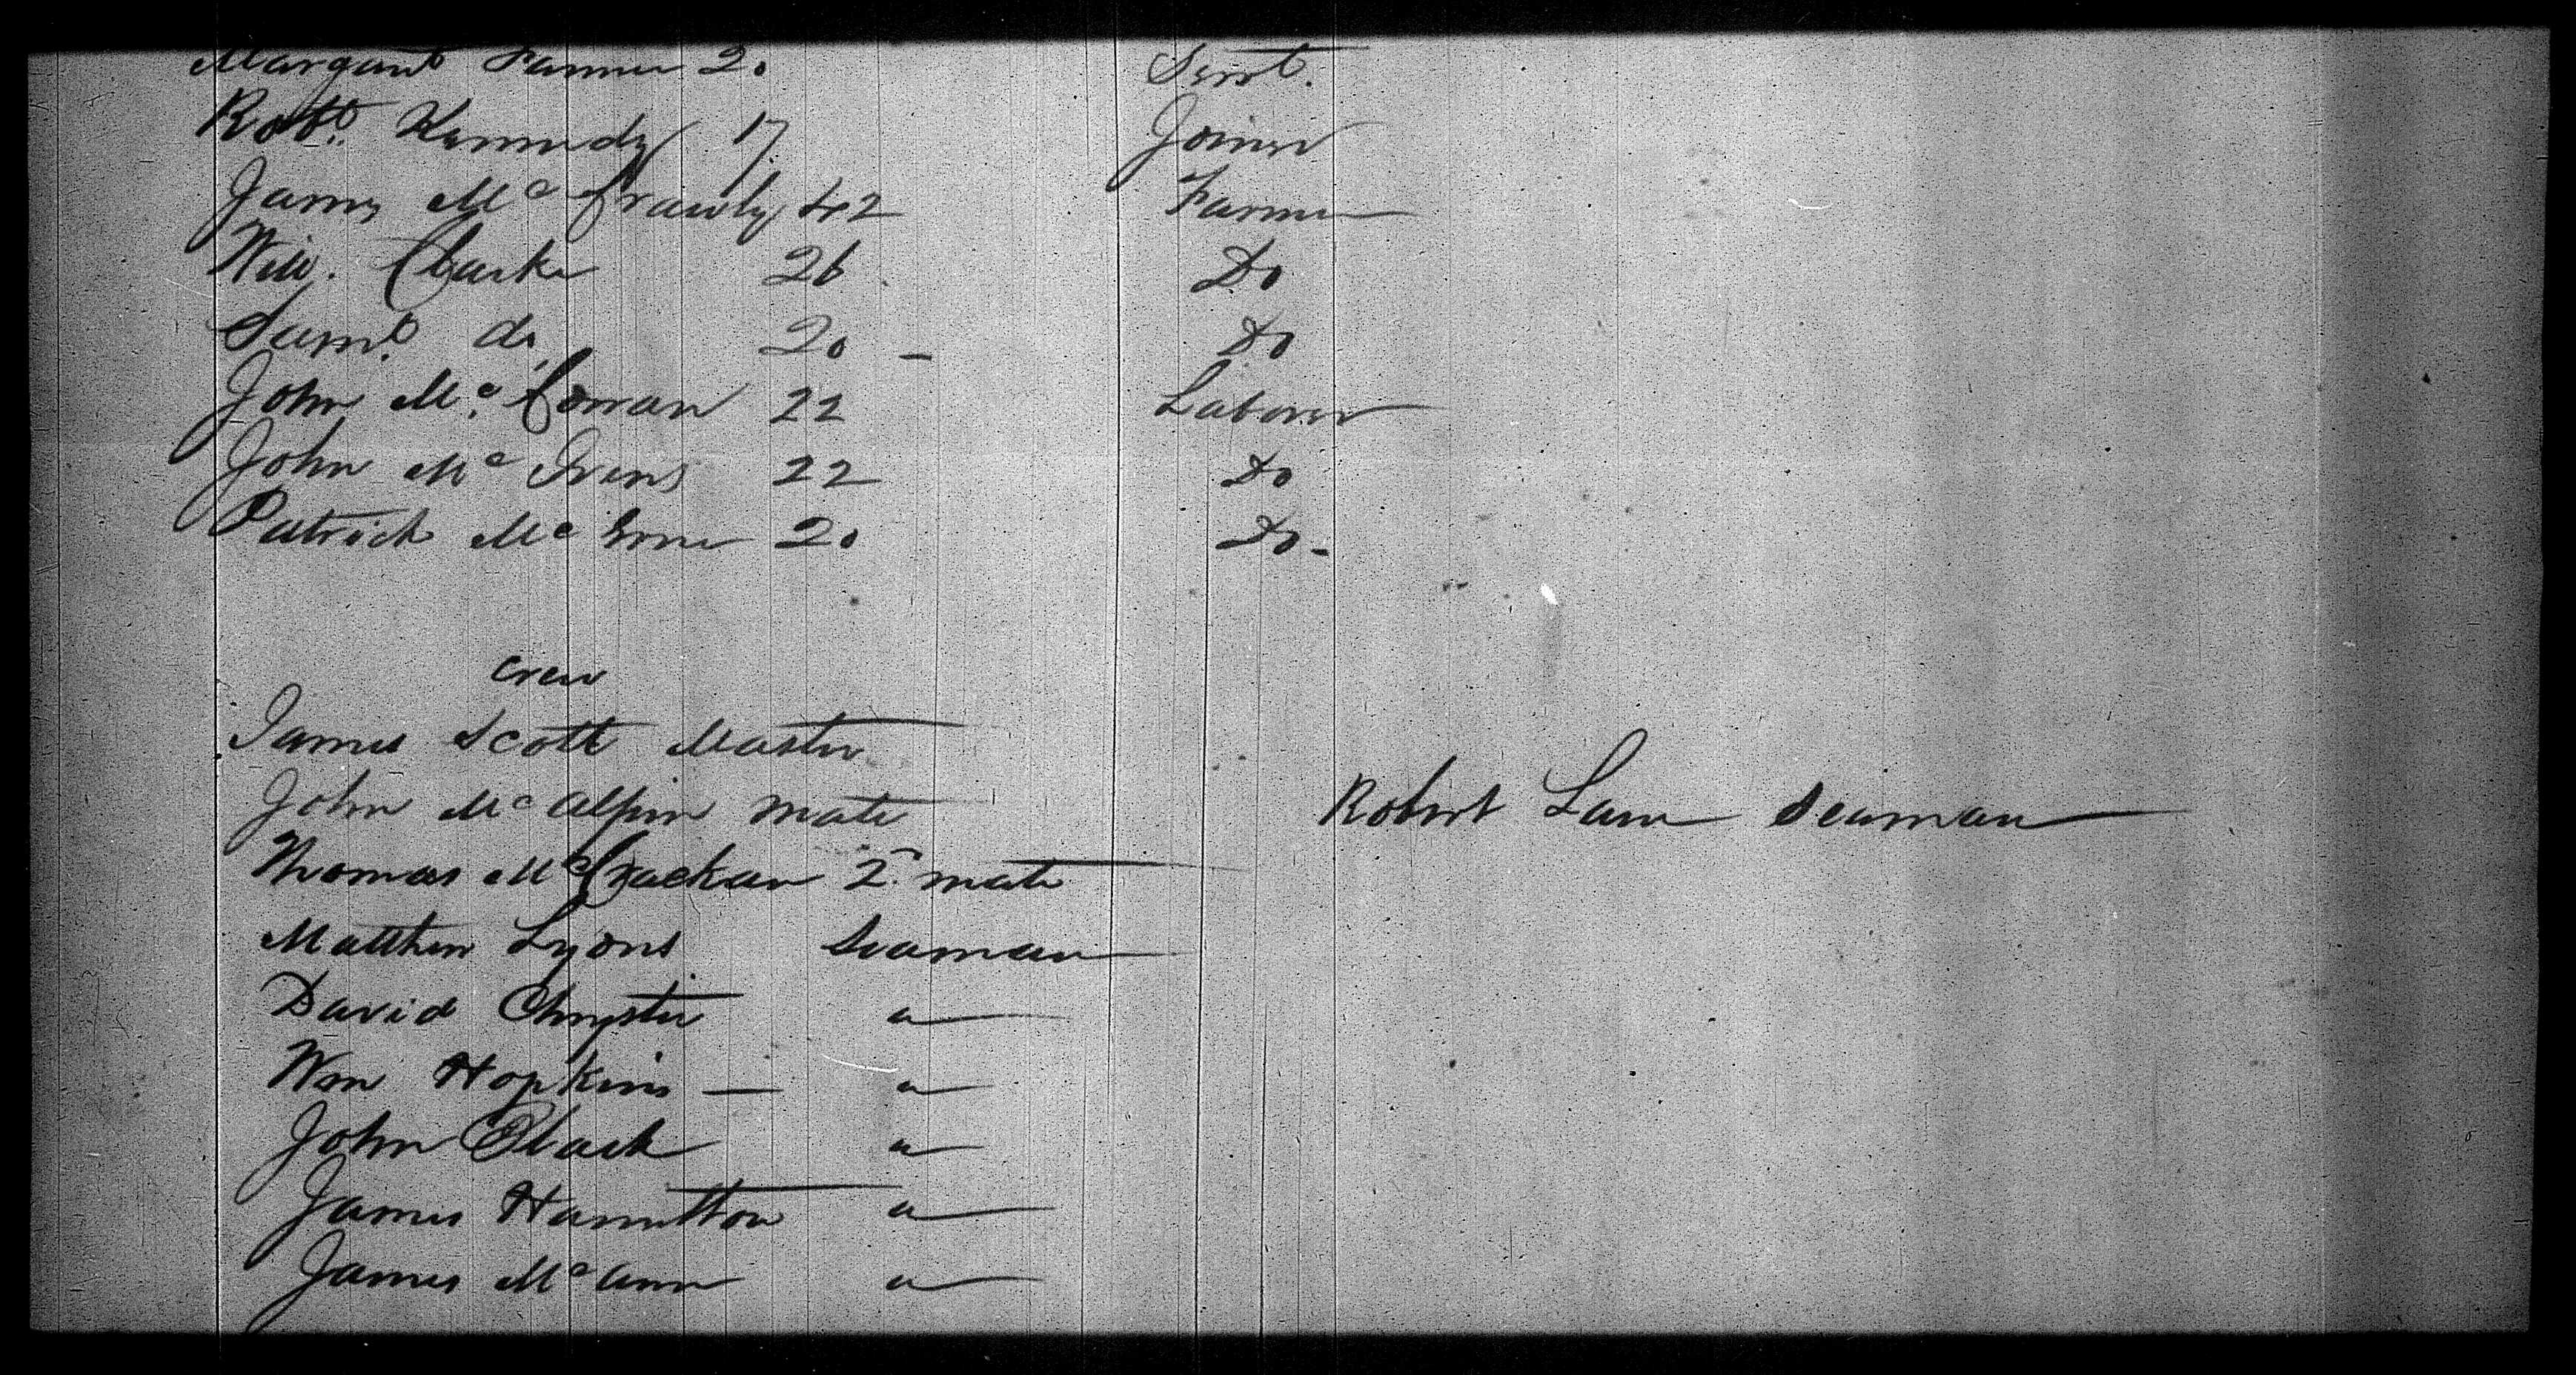 Margaret Farmer 20 Servt.
Robt. Kennedy 17 Joiner
James Mc Crawly 42 Farmer
Will. Clarke 26 Do
Saml. do 20 - Do
John Mc. Cowan 22 Laborer
John Mc 22 Do
Patrick Mc 20 Do-
crew
James Scott Master
John McAlpin mate
Robert Law Seaman
Thomas McCrackan 2d mate
Matthew Lyons Seaman
David Chrystie "
Wm Hopkins — "
John Black "
James Hamilton "
James McCann "